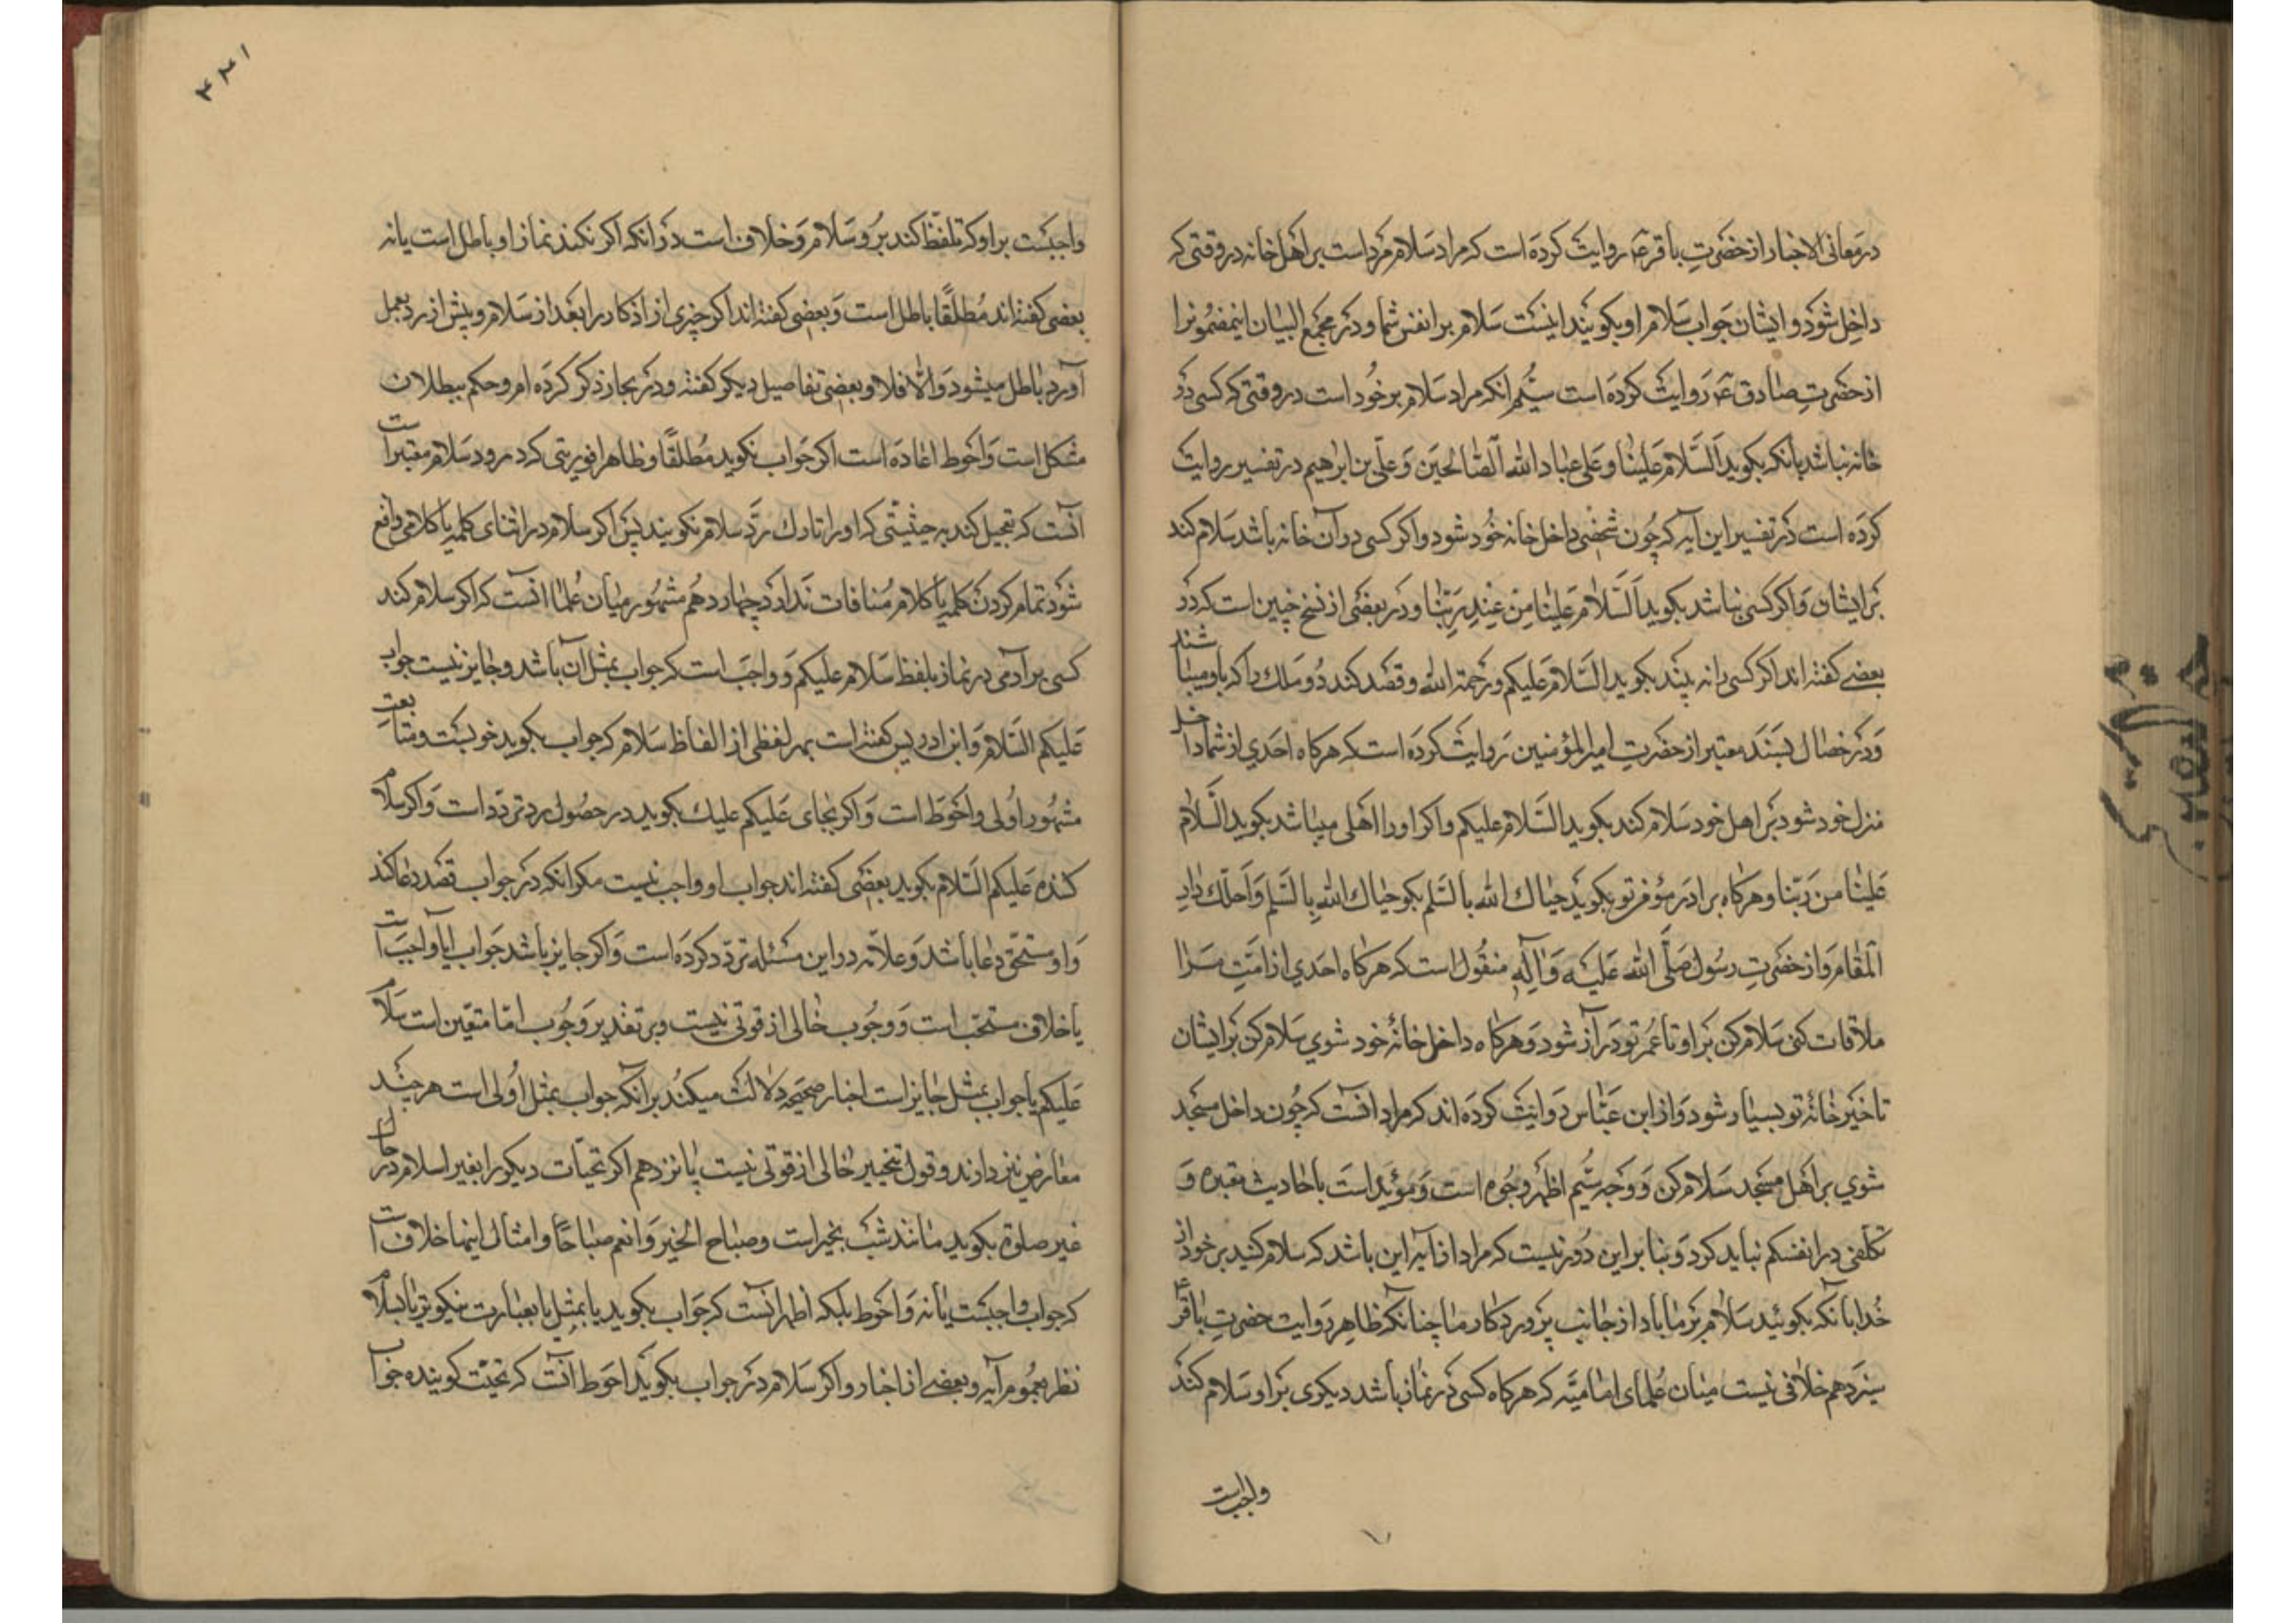 در معانی الاخبار از حضرتِ باقر ع روایت کرده است که مراد سلام مرد است بر اهل خانه در وقتی که
داخل شود و ایشان جواب سلام او بکویند اینست سلام بر انفس شما و در مجمع البیان اینمضمونرا
از حضرتِ صادق ع روایت کرده است سیُّم انکه مراد سلام بر خود است در وقتی که کسی در
خانه نباشد بانکه بکوید اَلسَّلام عَلَینا وَ عَلی عباد الله الصّالحین وَ علّی بن ابراهیم در تفسیر روایت
کرده است در تفسیر این ایه که چون شخصی داخل خانه خود شود و اکر کسی در آن خانه باشد سلام کند
بر ایشان و اکر کسی نباشد بکوید اَلسَّلام عَلینا مِن عِندِ رَبِّنا و در بعضی از نسخ چنین است که در
بعضے کفته اند اکر کسی را نه بیند بکوید السّلام علیکم و رحمة الله و قصد کند دو ملك را که با او میباشند
وَ در خصال بسند معتبر از حضرتِ امیر المؤمنین روایت کرده است که هرکاه احدي از شما داخل
منزل خود شود بر اهل خود سلام کند بکوید السّلام علیکم و اکر او را اهلی نباشد بکوید السَّلام
عَلینا من رَبّنا و هرکاه برادر مؤمن تو بکوید حیاك الله بالسّلم بکو حیاك الله بالسّلم وَ احلّك دار
المقام وَ از حضرتِ رسُول صَلّی الله عَلیه وَ آلهِ منقول است که هرکاه احدي از امّتِ مرا
ملاقات کنی سلام کن بر او تا عمر تو دراز شود وَ هرکاه داخل خانهٔ خود شوي سلام کن بر ایشان
تا خیر خانهٔ تو بسیار شود وَ از ابن عبّاس روایت کرده اند که مراد انست که چون داخل مسجد
شوي بر اهل مسجد سلام کن وَ وجه سیُّم اظهر وجوه است وَ مؤیّد است باحادیث معتبره وَ
تکلفی در انفسکم نباید کرد وَ بنا بر این دُور نیست که مراد از آیه این باشد که سلام کنید بر خود از
خُدا بآنکه بکوئید سلام بر ما باد از جانب پروردکار ما چنانکه ظاهر روایت حضرتِ باقر ع
سیزدهم خلافی نیست میان علمای امامیّه که هرکاه کسی در نماز باشد دیکری بر او سلام کند
واجب است
۴۳۱
واجبست بر او که تلفّظ کند بر وسلام وَ خلاف است در انکه اکر نکند نماز او باطل است یا نه
بعضی کفته اند مُطلقًا باطل است وَ بعضی کفته اند اکر چیزی از اذکار را بعد از سلام و پیش از رد بعمل
آورد باطل میشود وَ الّا فلا و بعضی تفاصیل دیکر کفته و در بحار ذکر کرده ام و حکم ببطلان
مشکل است وَ احوط اعاده است اکر جواب نکوید مُطلقًا و ظاهرا فوریتی که در رد سلام معتبر است
انست که تعجیل کند به حیثیّتی که او را تارك ردّ سلام نکویند پس اکر سلام در اثنای کلمه یا کلامی واقع
شود تمام کردن کلمه یا کلام منافات ندارد چهاردهم مشهور میان عُلما انست که اکر سلام کند
کسی بر آدمی در نماز بلفظ سلام علیکم وَ واجب است که جواب بمثل آن باشد و جایز نیست جواب
عَلیکم السّلام وَ ابن ادریس کفته است بهر لفظی از الفاظ سلام که جواب بکوید خوبست و متابعتِ
مشهور اولی و احوط است وَ اکر بجای عَلیکم علیك بکوید در حصول رد تردّد است وَ اکر سلام
کننده عَلیکم السّلام بکوید بعضی کفته اند جواب او واجب نیست مکر انکه در جواب قصد دعا کند
وَ او مستحقّ دعا باشد وَ علّامه در این مسئله تردّد کرده است وَ اکر جایز باشد جواب ایا واجب است
یا خلاف مستحب است وَ وجُوب خالی از قوتی نیست و بر تقدیر وَجوب امّا متعّین است سلام
عَلیکم یا جواب بمثل جایز است اخبار صحیحه دلالت میکند بر آنکه جواب بمثل اولی است هر چند
معارض نیز دارند و قول بتخییر خالی از قوتی نیست پانزدهم اکر تحیّات دیکر را بغیر اسلام در حال
غیر صلوة بکوید مانند شب بخیر است و صباح الخیر وَ انعم صباحًا و امثال اینها خلاف است
که جواب واجبست یا نه وَ احوط بلکه اظهر انست که جواب بکوید یا بمثل یا بعبارت نیکوتر یا بسلام
نظر بعموم آیه و بعضے از اخبار و اکر سلام در جواب بکوید احوط انست که تحیّت کوینده جواب